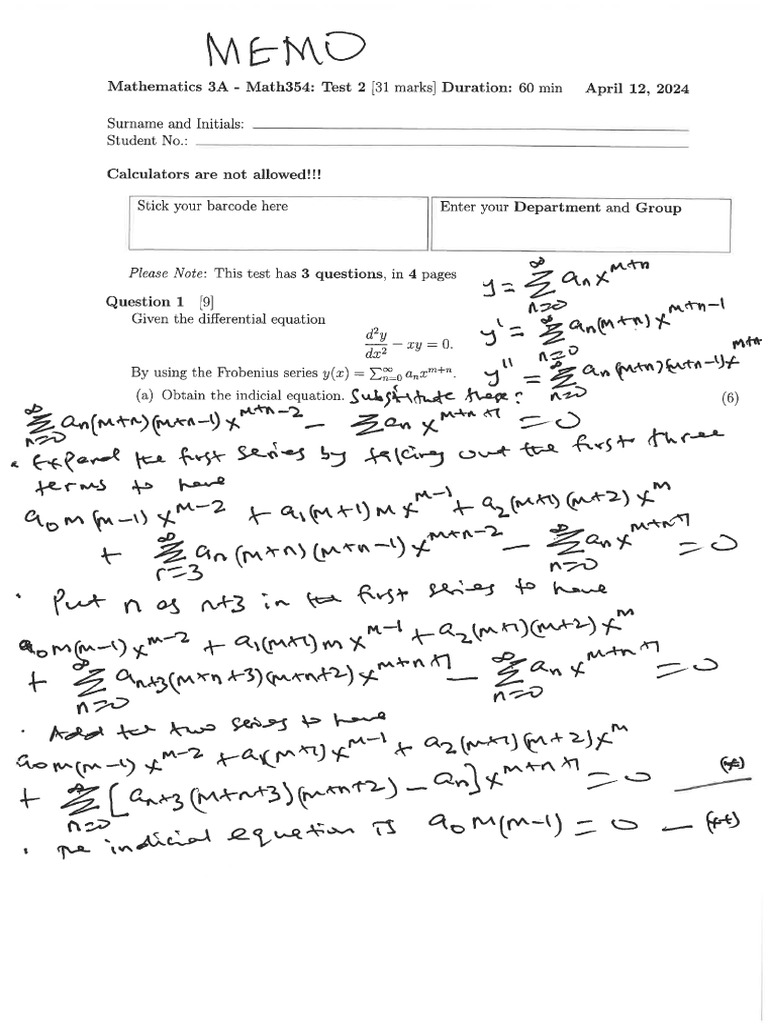 MEMO
Mathematics 3A - Math354: Test 2 [31 marks] Duration: 60 min April 12, 2024
Surname and Initials:
Student No.:
Calculators are not allowed!!!
Stick your barcode here
Enter your Department and Group
Please Note: This test has 3 questions, in 4 pages
y = ∑_{n=0}^{∞} a_n x^{m+n}
Question 1 [9]
Given the differential equation
y' = ∑_{n=0}^{∞} a_n (m+n) x^{m+n-1}
d²y/dx² − xy = 0.
By using the Frobenius series y(x) = ∑_{n=0}^{∞} a_n x^{m+n}.
y'' = ∑_{n=0}^{∞} a_n (m+n)(m+n-1) x^{m+n
(a) Obtain the indicial equation. Substitute these: (6)
∑_{n=0}^{∞} a_n (m+n)(m+n-1) x^{m+n-2} − ∑ a_n x^{m+n+1} = 0
• Expand the first series by taking out the first three
terms to have
a_0 m(m-1) x^{m-2} + a_1 (m+1) m x^{m-1} + a_2 (m+1)(m+2) x^m
+ ∑_{r=3}^{∞} a_n (m+n)(m+n-1) x^{m+n-2} − ∑_{n=0}^{∞} a_n x^{m+n+1} = 0
• Put n as n+3 in the first series to have
a_0 m(m-1) x^{m-2} + a_1 (m+1) m x^{m-1} + a_2 (m+1)(m+2) x^m
+ ∑_{n=0}^{∞} a_{n+3} (m+n+3)(m+n+2) x^{m+n+1} − ∑_{n=0}^{∞} a_n x^{m+n+1} = 0
• Add the two series to have
a_0 m(m-1) x^{m-2} + a_1 (m+1) x^{m-1} + a_2 (m+1)(m+2) x^m
+ ∑_{n=0}^{∞} [a_{n+3} (m+n+3)(m+n+2) − a_n] x^{m+n+1} = 0 — (*)
• The indicial equation is a_0 m(m-1) = 0 — (**)